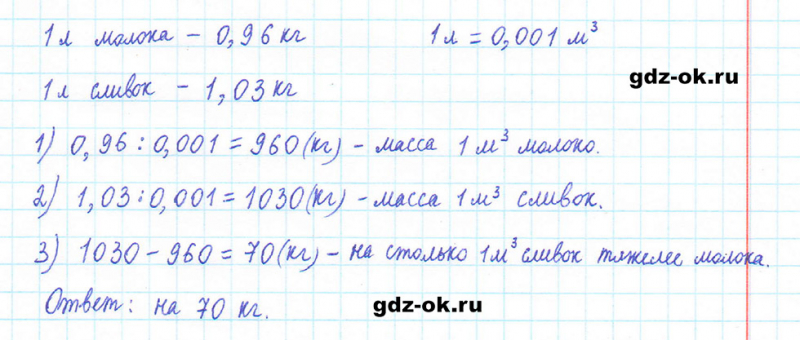 1л молока – 0,96 кг 1л = 0,001 м³
gdz-ok.ru
1л сливок – 1,03 кг
1) 0,96 : 0,001 = 960 (кг) – масса 1 м³ молоко.
2) 1,03 : 0,001 = 1030 (кг) – масса 1 м³ сливок.
3) 1030 – 960 = 70 (кг) – на столько 1 м³ сливок тяжелее молока.
Ответ: на 70 кг.
gdz-ok.ru